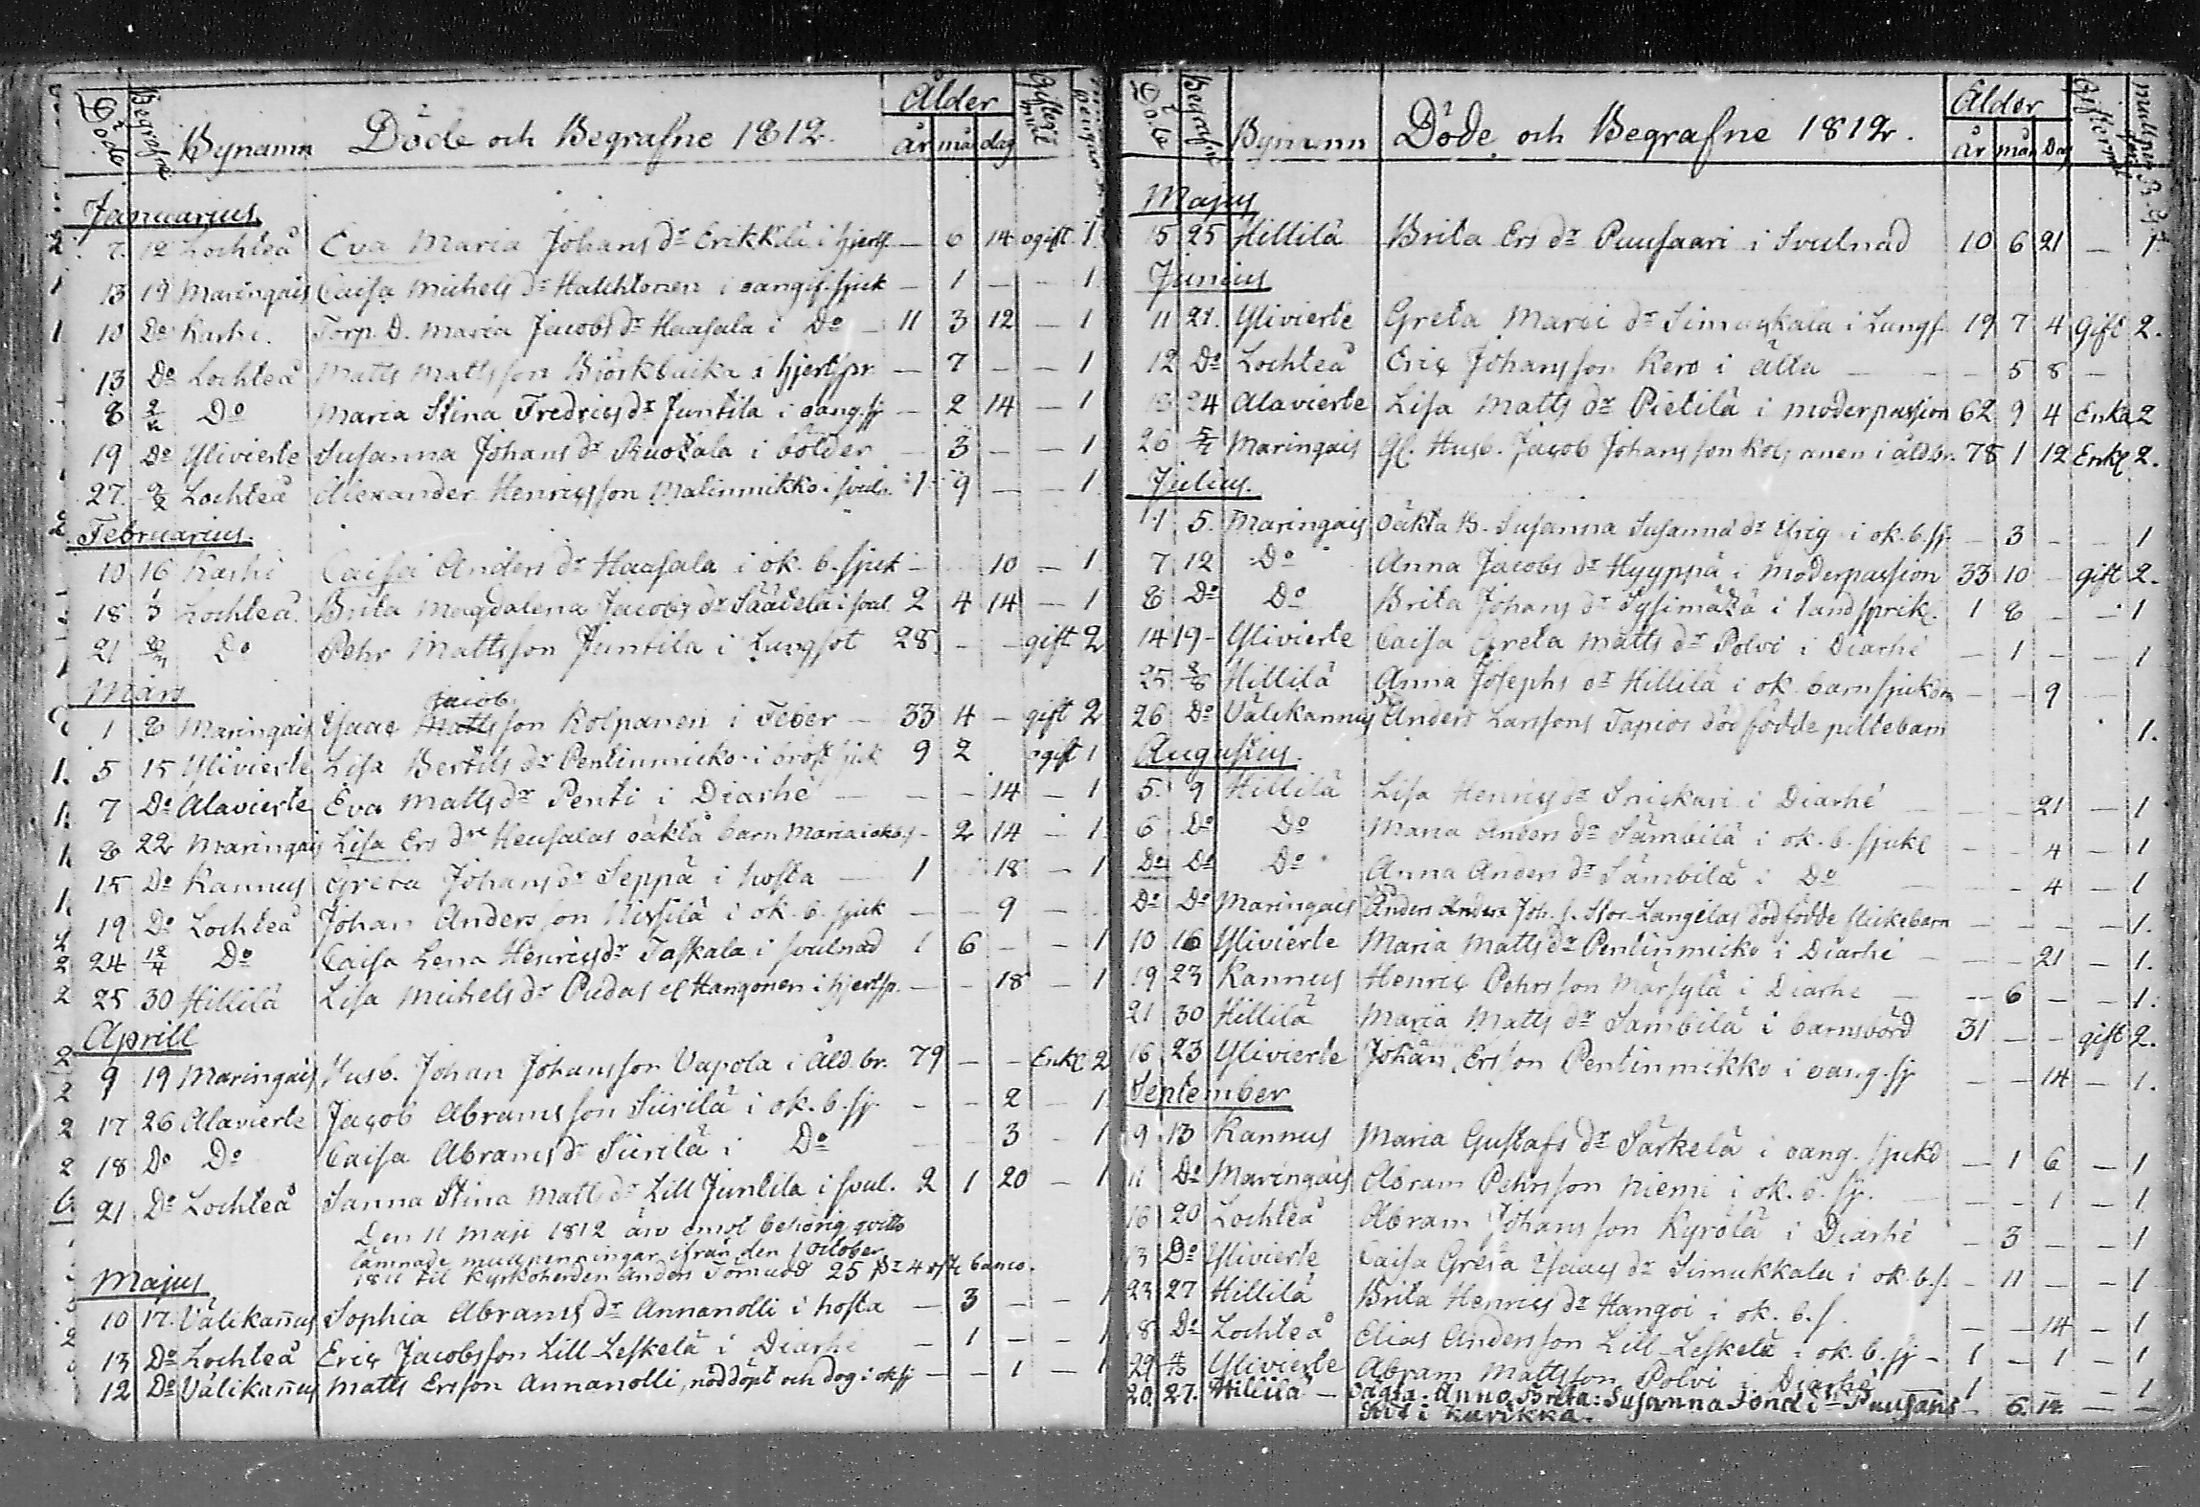 Döde Begrafne Bynamn Döde och Begrafne 1812. Ålder år må dag
Januarius.
7. 12 Lochteå Eva Maria Johans dr Erikkilä i hjertsp. — 6 14 ogift 1
13 19 Maringais Caisa Michels dr Halchtonen i oangif. sjuk — 1 — — 1
10 Do Karhi. Torp. D. Maria Jacobs dr Haasala i Do — 11 3 12 — 1
13 Do Lochteå Matts Mattsson Björkbacka i hjertspr — 7 — — 1
8 2/2 Do Maria Stina Fredrics dr Juntila i oang. sj — 2 14 — 1
19 Do Ylivierte Susanna Johans dr Ruotzala i bölder — 3 — — 1
27. 9/2 Lochteå Alexander Henricsson Matinmikko i svuln. 1 9 — — 1
Februarius.
10 16 Karhi Caisa Anders dr Haasala i ok. b. sjuk — 10 — 1
18 3 Lochteå Brita Magdalena Jacobs dr Säätelä i svul. 2 4 14 — 1
21 Do Pehr Mattsson Juntila i Lungsot 28 — — gift 2
Mars
Jacob
1 8 Maringais Isaac Mattsson Kolpanen i Feber — 33 4 — gift 2
5 15 Ylivierte Lisa Bertils dr Pentinmicko i bröst sjuk 9 2 ogift 1
7 Do Alavierte Eva Matts dr Penti i Diarhé — — — 14 — 1
8 22 Maringais Lisa Ers dr Heusalas oäkta barn Maria i okbs — 2 14 — 1
15 Do Kannus Greta Johans dr Seppä i hosta — 1 18 — 1
19 Do Lochteå Johan Andersson Nissilä i ok. b. sjuk — — 9 —
24 12/4 Do Caisa Lena Henrics dr Taskala i svulnad 1 6 — — 1
25 30 Hillilä Lisa Michels dr Pudas el Hangonen i hjertsp. — — 18 — 1
Aprill
9 19 Maringais Husb. Johan Johansson Vapola i Åld. br. 79 — — Enkl 2
17 26 Alavierte Jacob Abramsson Siirilä i ok. b. sj. — — 2 — 1
18 Do Do Caisa Abrams dr Siirilä i Do — — 3 — 1
21 Do Lochteå Sanna Stina Matts dr Lill Juntila i svul. 2 1 20 — 1
Den 11 Maji 1812 äro emot behörig qvitto
lämnade mullpenningar ifrån den 1 October
1811 til Kyrkoherden Anders Törnudd 25 Rr 4 banco.
Majus
10 17. Välikan̄us Sophia Abrams dr Annanolli i hosta — 3 — — 1
13 Do Lochteå Eric Jacobsson Lill-Leskelä i Diarhé — 1 — — 1
12 Do Välikan̄us Matts Ersson Annanolli, nöddöpt och dog i oksj — — 1 — 1
Döde Begrafne Bynamn Döde och Begrafne 1812. Ålder år mån Dag Gifterm
Majus
15 25 Hillilä Brita Ers dr Puusaari i Svulnad 10 6 21 — 1
Junius
11 21. Ylivierte Greta Marci dr Simuckala i Lungs. 19 7 4 Gift 2.
12 Do Lochteå Eric Johansson Kero i älta — — — 5 8 —
13 24 Alavierte Lisa Matts dr Pietilä i moderpassion 62 9 4 Enka 2
26 5/7 Maringais Gl. Husb. Jacob Johansson Kolpanen i åld br. 78 1 12 Enkl. 2.
Julius.
1 5. Maringais oäkta B. Susanna Susanna dr Yrig i ok. b. sj. — 3 — — 1
7 12 Do Anna Jacobs dr Hyyppä i Moderpassion 33 10 — gift 2.
8 Do Do Brita Johans dr Sysimätzä i tandsprik. 1 8 — — 1
14 19 Ylivierte Caisa Greta Matts dr Polvi i Diarhé — 1 — — 1
25 2/8 Hillilä Anna Josephs dr Hillilä i ok barnsjukdm — — 9
26 Do Välikannus Anders Larssons Tapios död födde piltebarn 1.
Augustus.
5. 9 Hillilä Lisa Henrics dr Snickari i Diarhé — — 21 — 1
6 Do Do Maria Anders dr Sämbilä i ok. b. sjukl — — 4 — 1
Do Do Do Anna Anders dr Sämbilä i Do — — 4 — 1
Do Do Maringais Anders Anders Joh. s. Stor-Langilas död födde flickebarn — — — — 1.
10 16 Ylivierte Maria Matts dr Pentinmicko i Diarhé — — 21 — 1.
19 23 Kannus Henric Pehrsson Märsylä i Diarhé — — 6 — — 1.
21 30 Hillilä Maria Matts dr Sämbilä i barnsbörd 31 — — gift 2.
16 23 Ylivierte Johan Ersson Pentinmikko i oang. sj — — 14 — 1.
September
9 13 Kannus Maria Gustafs dr Särkelä i oang. sjukd — 1 6 — 1
11 Do Maringais Abram Pehrsson Niemi i ok. b. sj. — — 1 — 1
16 20 Lochteå Abram Johansson Kyrölä i Diarhé — 3 — — 1
13 Do Ylivierte Caisa Greta Isaacs dr Simukkala i ok. b. s. — 11 — — 1
23 27 Hillilä Brita Henrics dr Hangoi i ok. b. s. — — 14 — 1
18 Do Lochteå Elias Andersson Lill-Leskelä i ok. b. sj — 1 — 1 — 1
29 4/10 Ylivierte Abram Mattsson Polvi i Diarhé — 1 — — — 1
20. 27. Hillilä — oägta. Anna Brita: Susanna Puusaris — 6. 12 — —
död i Kurikka.